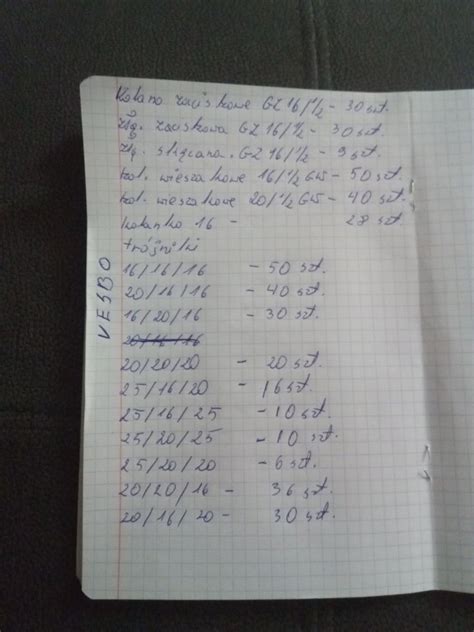 Kolano zaciskowe GZ 16/1/2 - 30 szt.
złą. zaciskowa GZ 16/1/2 - 30 szt.
złą. skręcana. GZ 16/1/2 - 9 szt.
kol. wieszakowe 16/1/2 GW - 50 szt.
kol. wieszakowe 20/1/2 GW - 40 szt.
kolanko 16 - 28 szt.
trójniki
16/16/16 - 50 szt.
20/16/16 - 40 szt.
16/20/16 - 30 szt.
20/16/16
20/20/20 - 20 szt.
25/16/20 - 16 szt.
25/16/25 - 10 szt.
25/20/25 - 10 szt.
25/20/20 - 6 szt.
20/20/16 - 36 szt.
20/16/20 - 30 szt.
VESBO